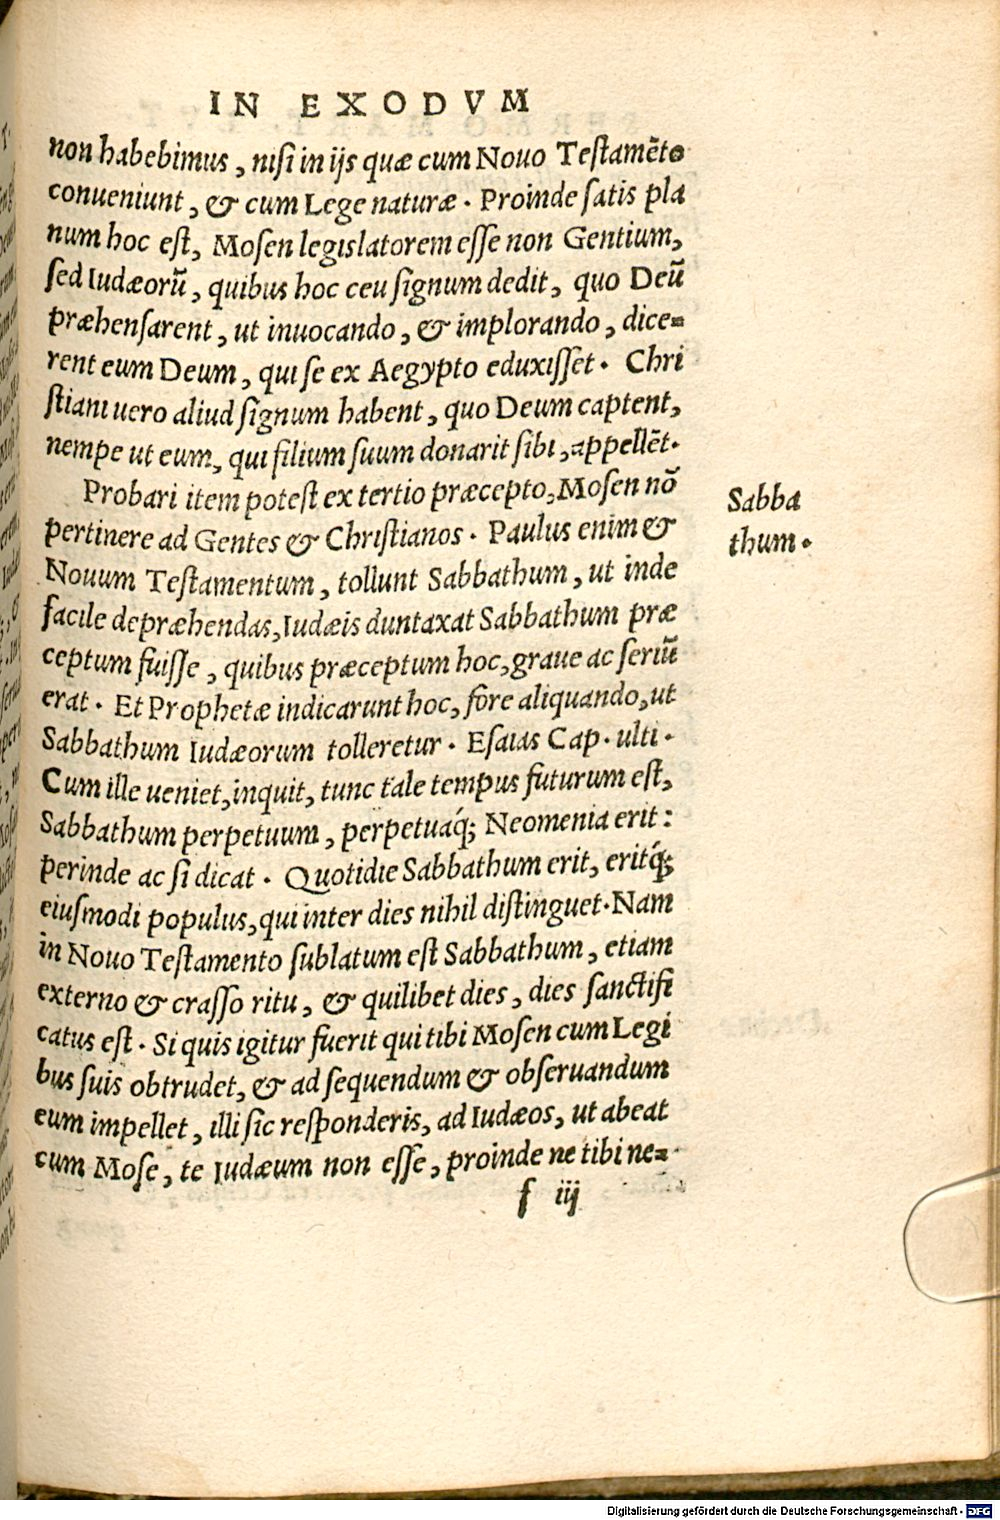 IN EXODVM
non habebimus, nisi in ijs quæ cum Nouo Testamẽto
conueniunt, & cum Lege naturæ. Proinde satis pla
num hoc est, Mosen legislatorem esse non Gentium,
sed Iudæorũ, quibus hoc ceu signum dedit, quo Deũ
præhensarent, ut inuocando, & implorando, dice=
rent eum Deum, qui se ex Aegypto eduxisset. Chri
stiani uero aliud signum habent, quo Deum captent,
nempe ut eum, qui filium suum donarit sibi, appellẽt.
Probari item potest ex tertio præcepto, Mosen nõ
pertinere ad Gentes & Christianos. Paulus enim &
Nouum Testamentum, tollunt Sabbathum, ut inde
facile depræhendas, Iudæis duntaxat Sabbathum præ
ceptum fuisse, quibus præceptum hoc, graue ac seriũ
erat. Et Prophetæ indicarunt hoc, fore aliquando, ut
Sabbathum Iudæorum tolleretur. Esaias Cap. ulti.
Cum ille ueniet, inquit, tunc tale tempus futurum est,
Sabbathum perpetuum, perpetuaq́; Neomenia erit:
perinde ac si dicat. Quotidie Sabbathum erit, eritq́;
eiusmodi populus, qui inter dies nihil distinguet. Nam
in Nouo Testamento sublatum est Sabbathum, etiam
externo & crasso ritu, & quilibet dies, dies sanctifi
catus est. Si quis igitur fuerit qui tibi Mosen cum Legi
bus suis obtrudet, & ad sequendum & obseruandum
eum impellet, illi sic responderis, ad Iudæos, ut abeat
cum Mose, te Iudæum non esse, proinde ne tibi ne=
f iij
Sabba
thum.
Digitalisierung gefördert durch die Deutsche Forschungsgemeinschaft - DFG